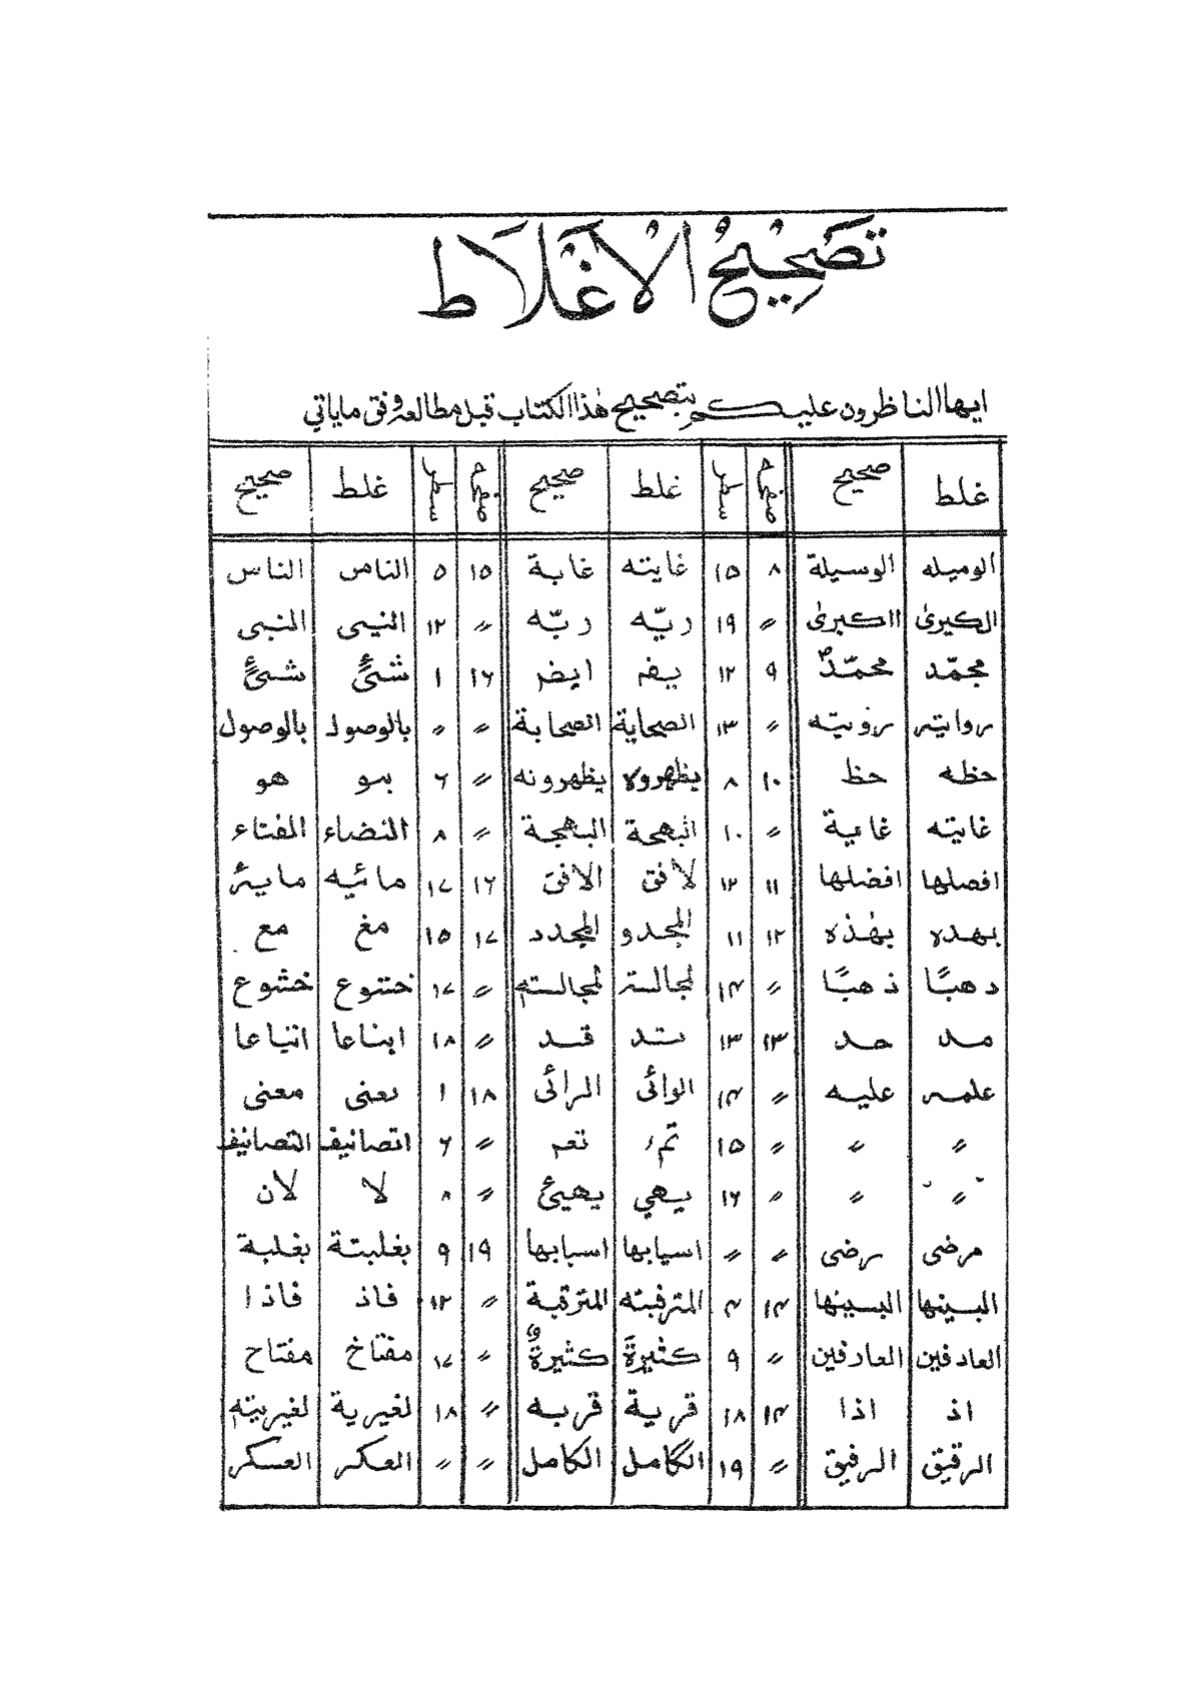 تَصْحِيْحُ الْاَغْلَاط
ايها الناظرون عليكم بتصحيح هٰذا الكتاب قبل مطالعه وفق ماياتي
غلط صحيح صفحه سطر غلط صحيح صفحه سطر غلط صحيح
الوميله الوسيلة ۸ ۱۵ غايته غابة ۱۵ ۵ النامس الناس
الكيرىٰ ااكبرىٰ 〃 ۱۹ ريّه ربّه 〃 ۱۲ النيبى النبى
مجمّد محمّدٌ ۹ ۱۲ يضر ايضر ۱۶ ۱ شئٌ شئٌ
روايته رؤيته 〃 ۱۳ الصحاية الصحابة 〃 〃 بالوصول بالوصول
حظه حظ ۱۰ ۸ يظهروه يظهرونه 〃 ۶ ہو هو
غايته غاية 〃 ۱۰ البهحة البهجة 〃 ۸ النضاء الفتاء
افصلها افضلها ۱۱ ۱۲ لافق الافق ۱۶ ۱۷ مائيه مايئر
بهده بهٰذه ۱۲ ۱۱ المجدو المجدد ۱۷ ۱۵ مغ مع
دهبًا ذهبًا 〃 ۱۴ لمجالسته لمجالستهم 〃 ۱۷ ختنوع خشوع
مد حد ۱۳ ۱۳ تد قد 〃 ۱۸ ابناعا اتباعا
علمه عليه 〃 ۱۴ الوائى الرائى ۱۸ ۱ يعنى معنى
〃 〃 〃 ۱۵ تم، تعم 〃 ۶ اتصانيف التصانيف
〃 〃 〃 ۱۶ يهي يهيئ 〃 ۸ لا لان
مرضى رضى 〃 〃 اسيابها اسبابها ۱۹ ۹ بغلبتة بغلبة
البينها البسينها ۱۴ ۴ المترفبته المترقبة 〃 ۱۲ فاذ فاذا
العادفين العارفين 〃 ۹ كثيرةً كثيرةٌ 〃 ۱۷ مفتاخ مفتاح
اذ اذا ۱۴ ۱۸ قرية قربه 〃 ۱۸ لغيرية لغيريته
الرقيق الرفيق 〃 ۱۹ الگامل الكامل 〃 〃 العكر العسكر